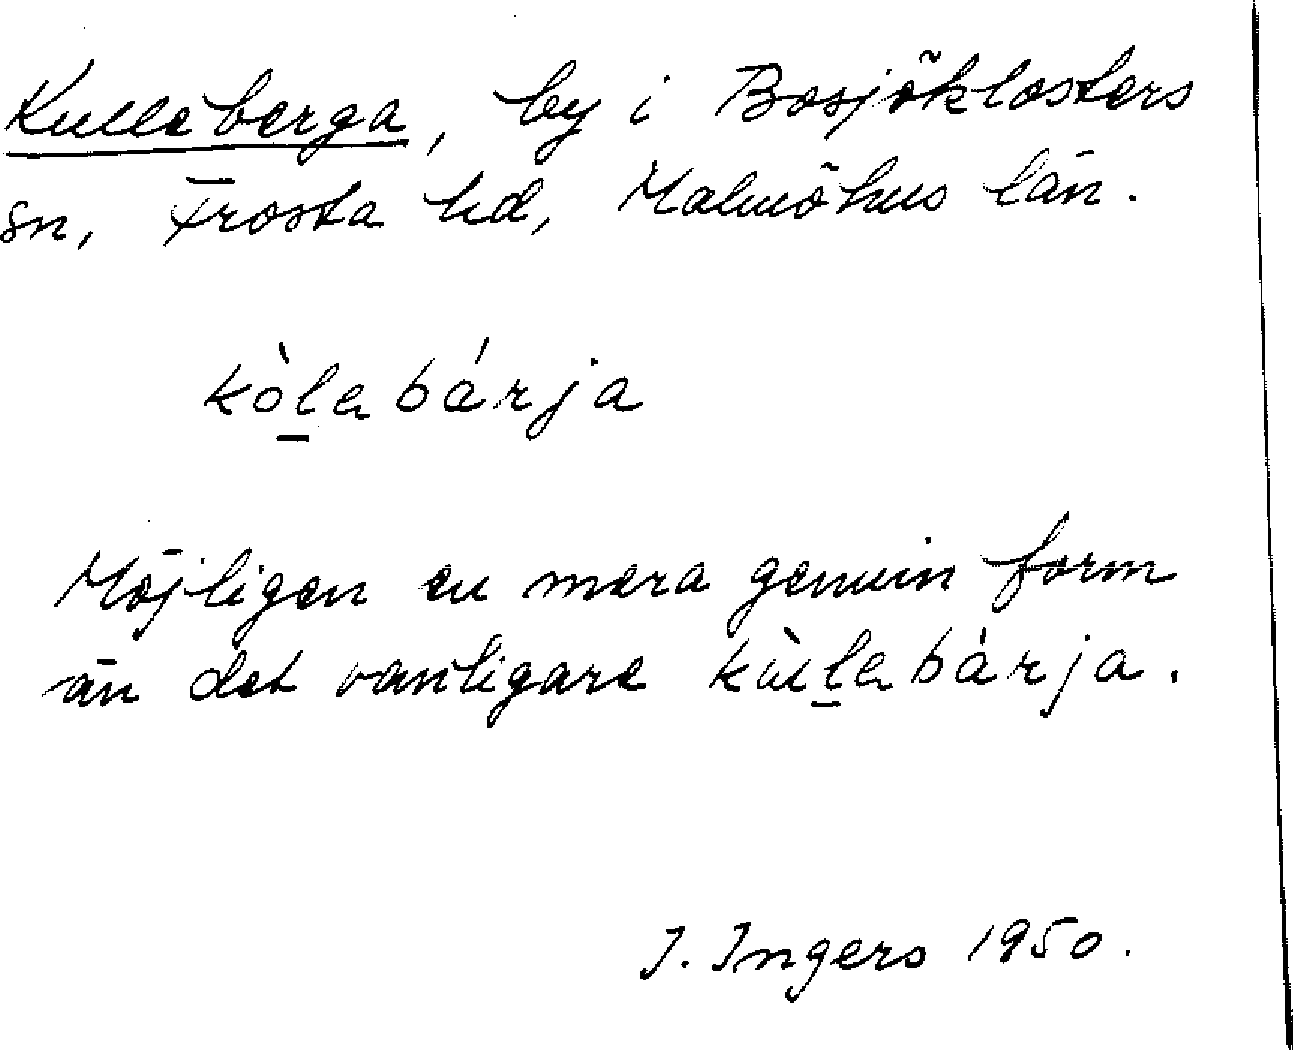 Kulleberga, by i Bosjöklosters
sn, Frosta hd, Malmöhus län.
kòl̲abárja
Möjligen en mera genuin form
än det vanligare kùl̲abárja.
I. Ingers 1950.